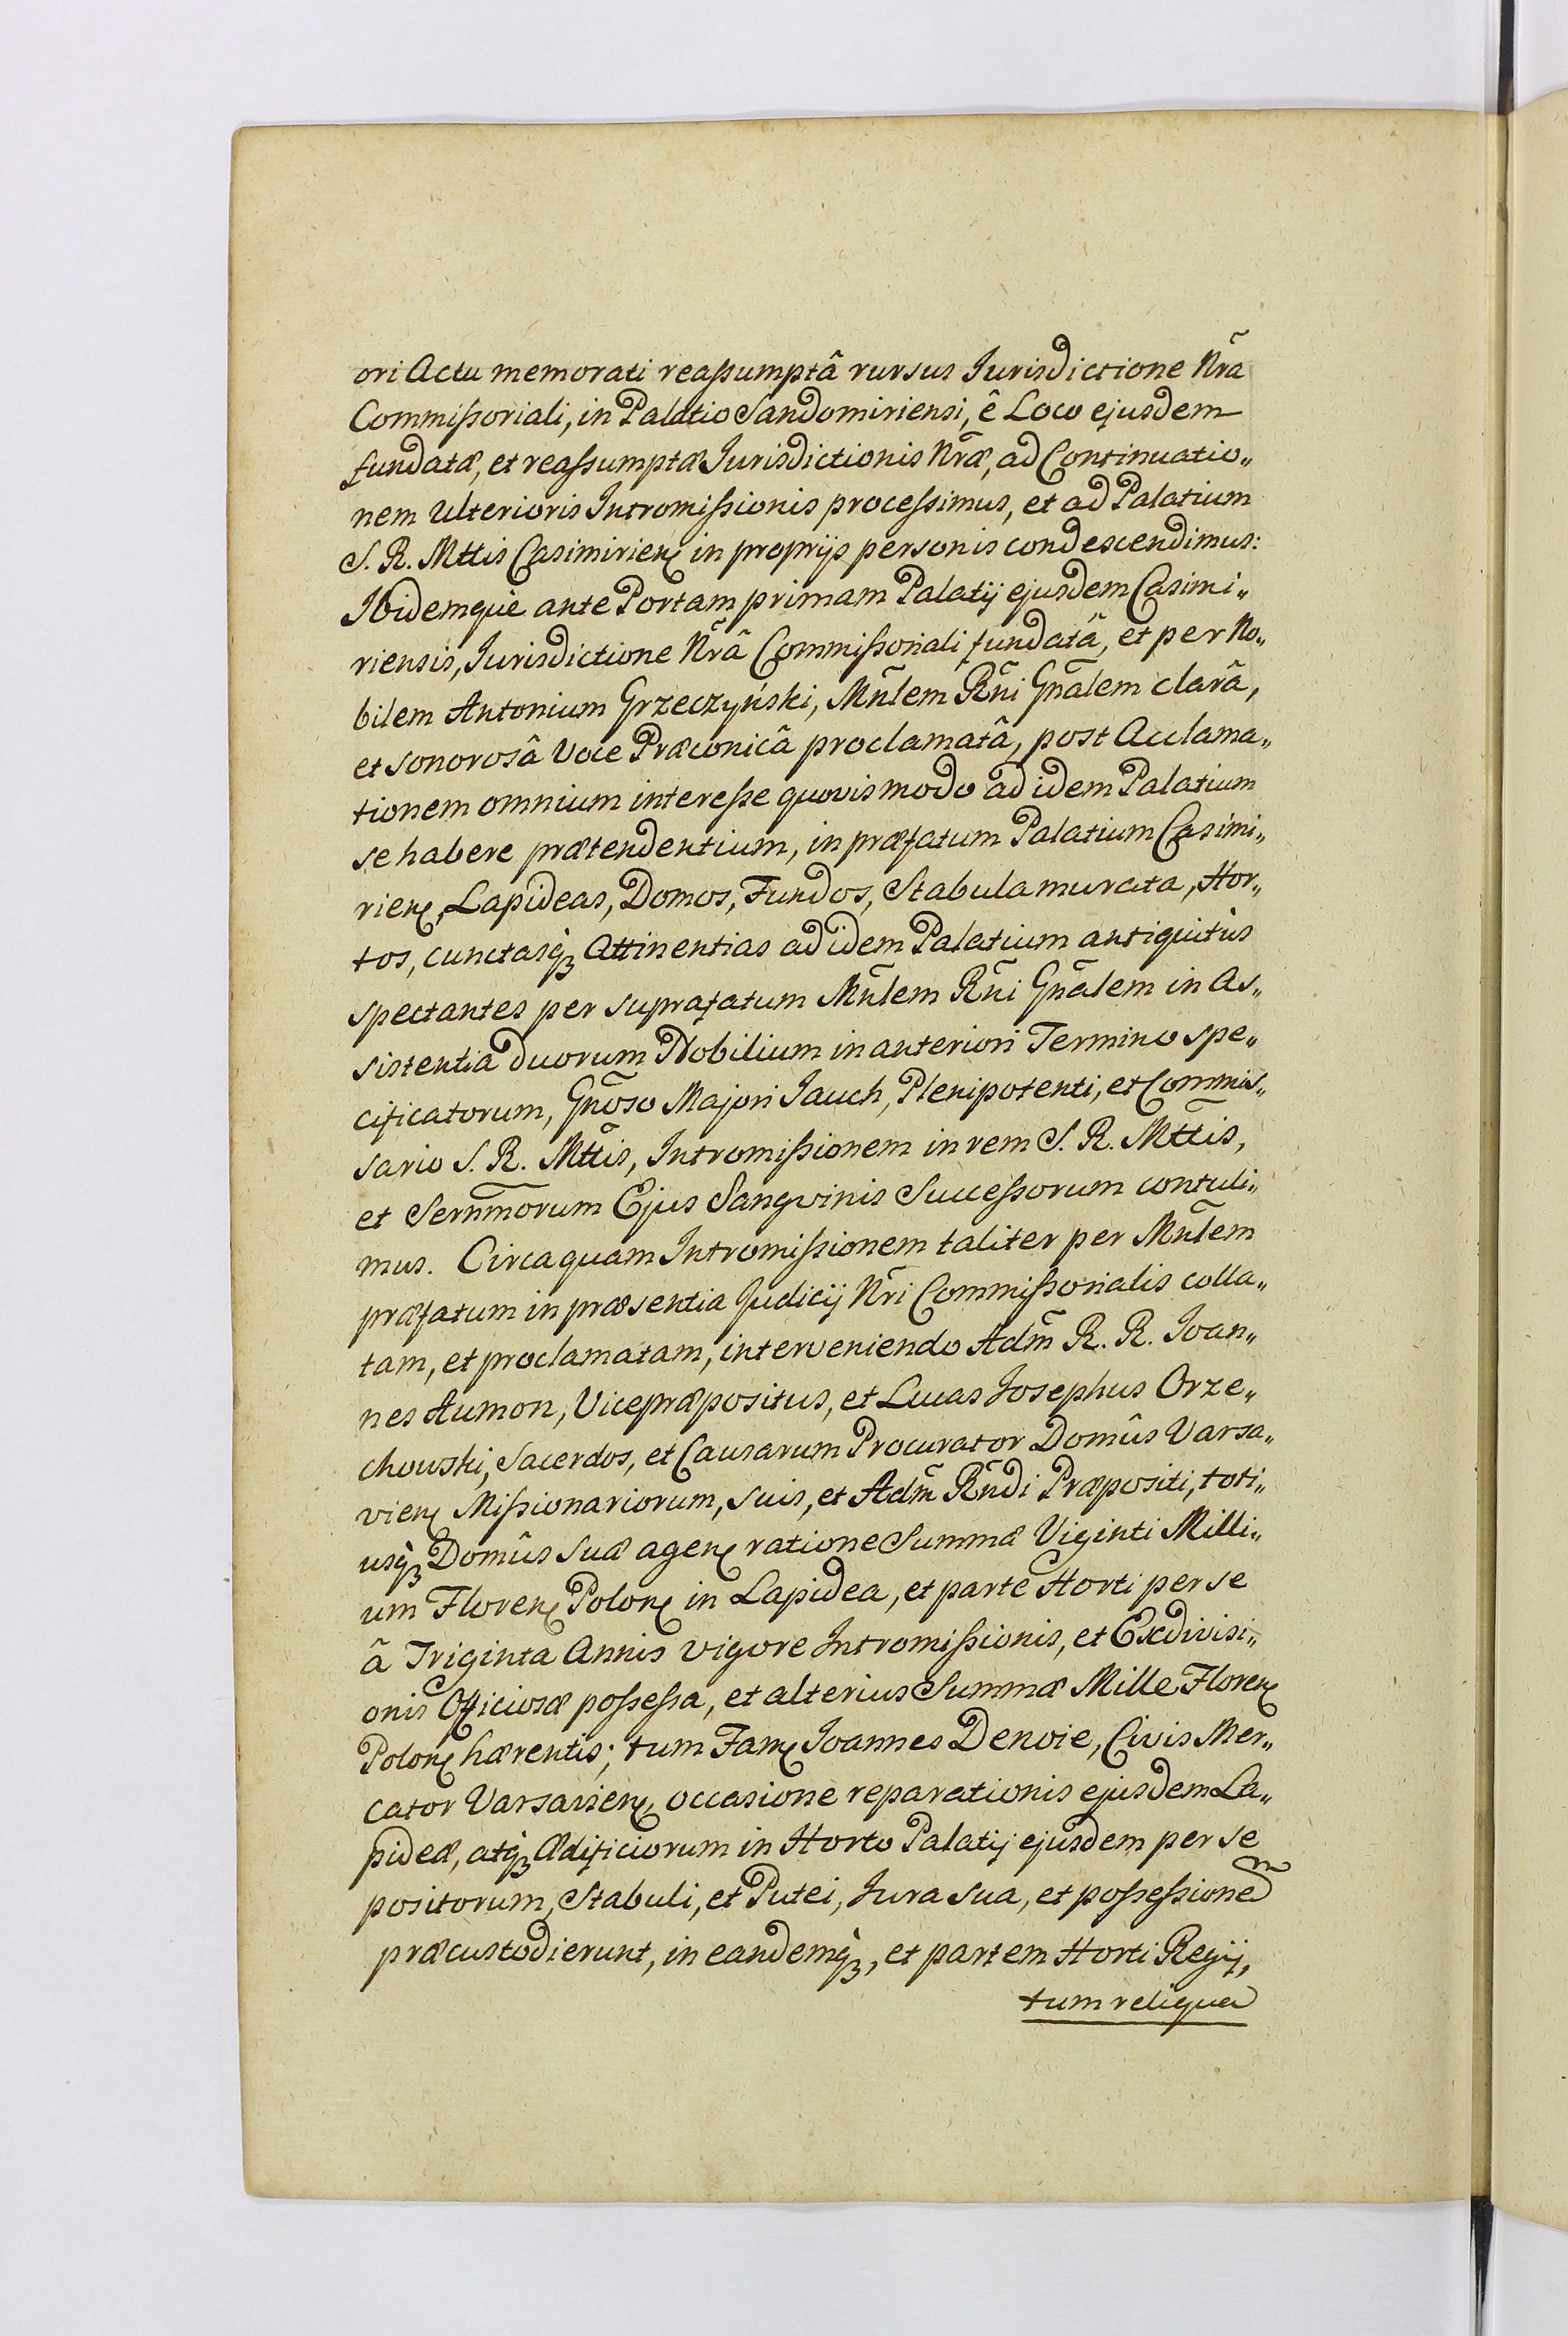 ori Actu memorati reaßumptâ rursus Jurisdictione Nr̃a
Commißoriali, in Palatio Sandomiriensi, ê Loco ejusdem
fundatæ, et reaßumptæ Jurisdictionis Nr̃æ, ad Continuatio„
nem Ulterioris Intromißionis proceßimus, et ad Palatium
S. R. Mttis Casimirien̨ in proprijs personis condescendimus:
Ibidemque ante Portam primam Palatij ejusdem Casimi„
riensis, Jurisdictione Nr̃â Commißoriali fundatâ, et per No„
bilem Antonium Grzeczyński, Mñlem Rñi Gñalem clarâ,
et sonorosâ Voce Præconicâ proclamatâ, post Acclama„
tionem omnium intereße quovis modo ad idem Palatium
se habere prætendentium, in præfatum Palatium Casimi„
rien̨, Lapideas, Domos, Fundos, Stabula murata, Hor„
tos, cunctasqꝫ Attinentias ad idem Palatium antiquitùs
spectantes per suprafatum Mñlem Rñi Gñalem in As„
sistentia duorum Nobilium in anteriori Termino spe„
cificatorum, Gñoso Majori Jauch, Plenipotenti, et Commis„
sario S. R. Mttis, Intromißionem in rem S. R. Mttis,
et Sernm̃orum Ejus Sangvinis Succeßorum contuli„
mus. Circa quam Intromißionem taliter per Mñlem
præfatum in præsentia Judicij Nr̃i Commißorialis colla„
tam, et proclamatam, interveniendo Adm̃ R. R. Joan„
nes Aumon, Vicepræpositus, et Lucas Josephus Orze„
chowski, Sacerdos, et Causarum Procurator Domûs Varsa„
vien̨ Mißionariorum, suis, et Adm̃ Rñdi Præpositi, toti„
usqꝫ Domûs suæ agen̨ ratione Summæ Viginti Milli„
um Floren̨ Polon̨ in Lapidea, et parte Horti per se
â Triginta Annis vigore Intromißionis, et Exdivisi„
onis Officiosæ poßeßa, et alterius Summæ Mille Floren̨
Polon̨ hærentis; tum Fam̨ Joannes Denoie, Civis Mer„
cator Varsavien̨, occasione reparationis ejusdem La„
pideæ, atqꝫ Ædificiorum in Horto Palatij ejusdem per se
positorum, Stabuli, et Putei, Jura sua, et poßeßionem̃
præcustodierunt, in eandemqꝫ, et partem Horti Regij,
tum reliqua